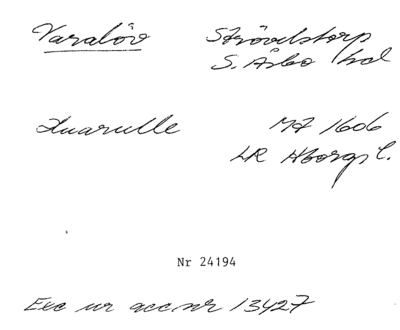 Varalöv Strövelstorp
S. Åsbo hd
MA 1606
LR Hborgs l.
Nr 24194
Exc ur acc nr 13427